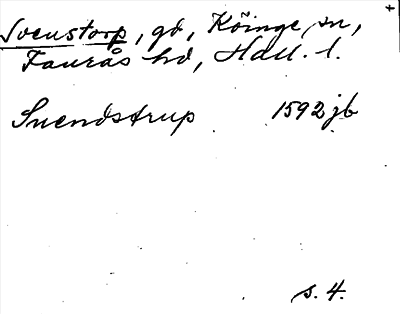 Svenstorp, gd, Köinge sn,
Faurås hd, Hall. l.
Snendstrup 1592 jb
s. 4.